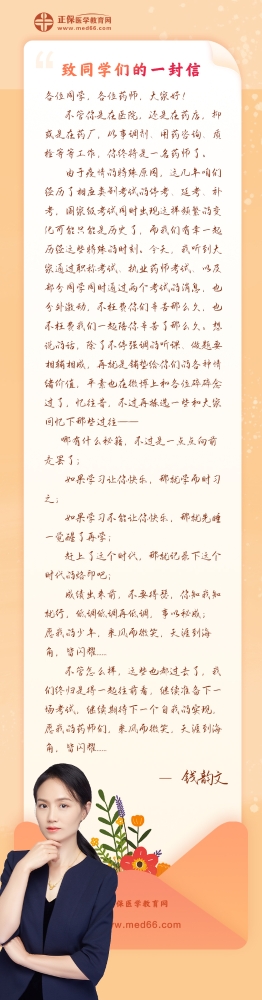 正保医学教育网
www.med66.com
致同学们的一封信
各位同学，各位药师，大家好！
不管你是在医院，还是在药店，抑
或是在药厂，从事调剂、用药咨询、质
检等等工作，你终将是一名药师了。
由于疫情的特殊原因，这几年咱们
经历了相应类别考试的停考、延考、补
考，国家级考试同时出现这样频繁的变
化可能只能是历史了，而我们有幸一起
历经这些特殊的时刻。今天，我听到大
家通过职称考试、执业药师考试、以及
部分同学同时通过两个考试的消息，也
分外激动，不枉费你们辛苦那么久，也
不枉费我们一起陪你辛苦了那么久。想
说的话，除了不停强调的听课、做题要
相辅相成，再就是铺垫给你们的各种情
绪价值，平素也在微博上和各位碎碎念
过了，忆往昔，不过再拣选一些和大家
回忆下那些过往——
哪有什么秘籍，不过是一点点向前
走罢了；
如果学习让你快乐，那就学而时习
之；
如果学习不能让你快乐，那就先睡
一觉醒了再学；
赶上了这个时代，那就记录下这个
时代的烙印吧；
成绩出来前，不要得瑟，你知我知
就行，低调低调再低调，事以秘成；
愿我的少年，乘风而微笑，天涯到海
角，皆闪耀……
不管怎么样，这些也都过去了，我
们终归是得一起往前看，继续准备下一
场考试，继续期待下一个自我的实现，
愿我的药师们，乘风而微笑，天涯到海
角，皆闪耀……
— 钱韵文
保医学教育网
www.med66.com